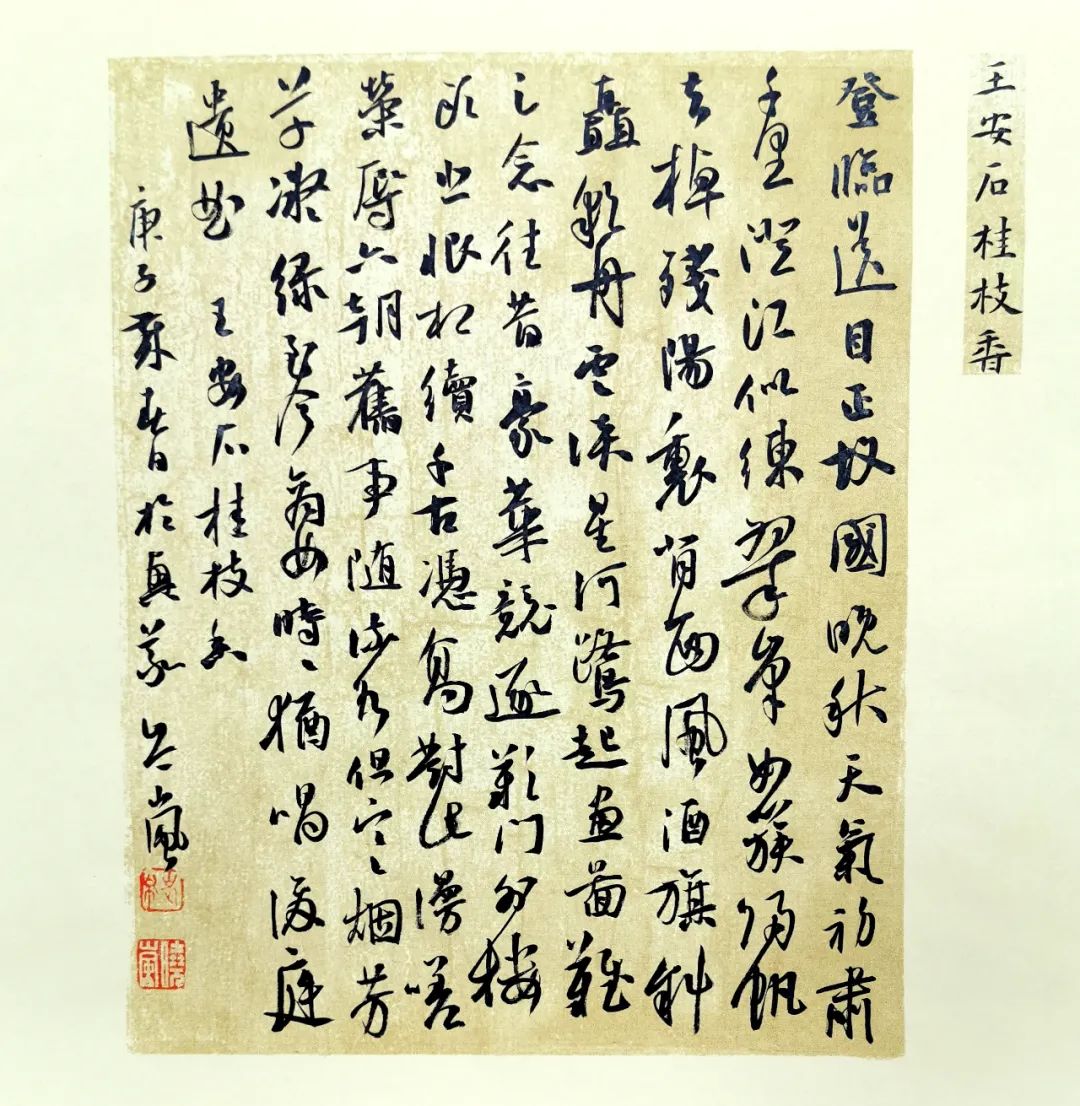 王安石桂枝香
登臨送目正故國晚秋天氣初肅
千里澄江似練翠峯如簇歸帆
去棹殘陽裏背西風酒旗斜
矗彩舟雲淡星河鷺起畫圖難
足念往昔豪華競逐歎門外樓
頭悲恨相續千古憑高對此謾嗟
榮辱六朝舊事隨流水但寒烟芳
草凝綠至今商女時時猶唱後庭
遺曲 王安石桂枝香
庚子 春日於 嵐